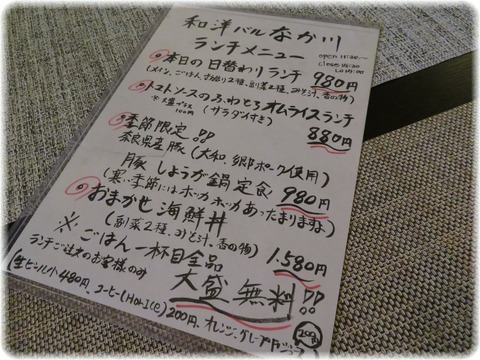 和洋バルなか川
ランチメニュー
open 11:30〜
本日の日替わりランチ 980円
(メイン、ごはん、2種、副菜2種、みそ汁、香の物)
トマトソースのふわとろオムライスランチ
※大盛プラス100円
(サラダ付き) 880円
季節限定!!
奈良県産豚(大和、郷ポーク使用)
豚しょうが鍋定食 980円
(寒い季節にはホッカホッカあったまりますよ)
おまかせ海鮮丼
(副菜2種、みそ汁、香の物) 1,580円
※ごはん一杯目全品
大盛無料!!
ランチご注文のお客様のみ
(生ビール小 480円、コーヒー(Hot・Ice) 200円、オレンジ、グレープ
200円